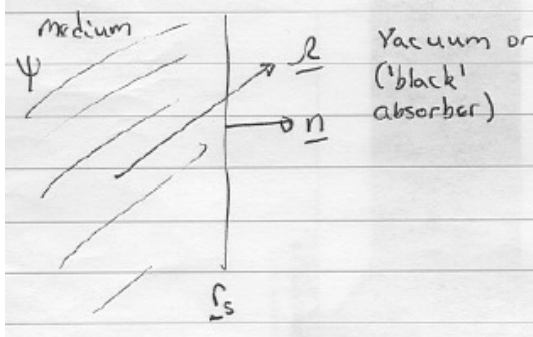 medium
Vacuum or
('black'
absorber)
Ψ
Ω
n
r_s